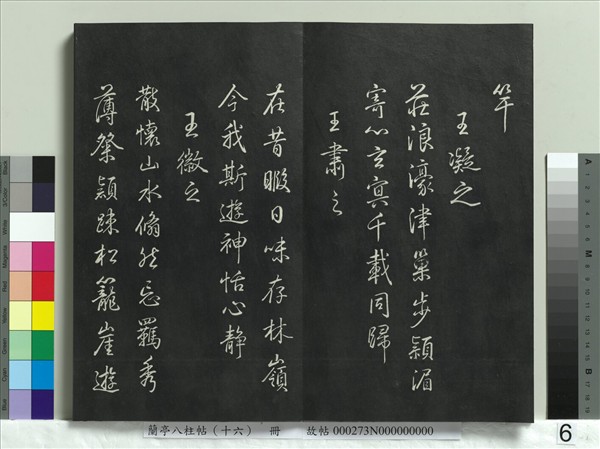 竿
王凝之
莊浪濠津巢步潁湄
寄心玄冥千載同歸
王肅之
在昔暇日味存林嶺
今我斯遊神怡心靜
王徽之
散懷山水翛然忘羈秀
薄粲穎疎松籠崖遊
蘭亭八柱帖（十六） 冊 故帖 000273N000000000
6
Black
3/Color
White
Magenta
Red
Yellow
Green
Cyan
Blue
A
M
B